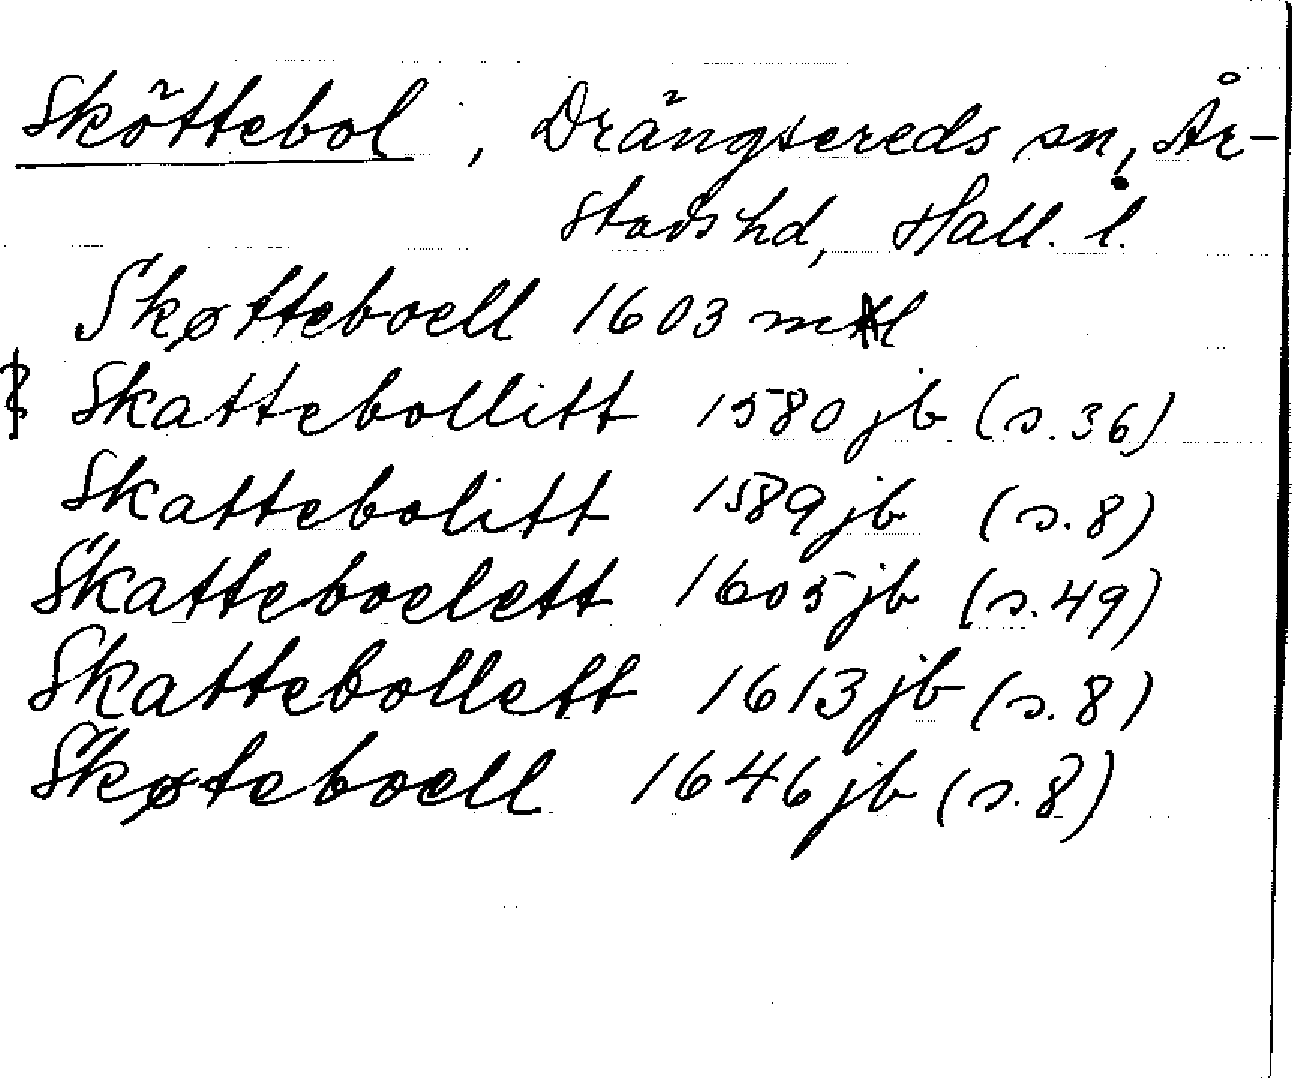 Sköttebol, Drängsereds sn, År-
stads hd, Hall. l.
Skøtteboell 1603 mtl
Skattebollitt 1580 jb (s. 36)
Skattebolitt 1589 jb (s. 8)
Skatteboelett 1605 jb (s. 49)
Skattebollett 1613 jb (s. 8)
Skøteboell 1646 jb (s. 8)